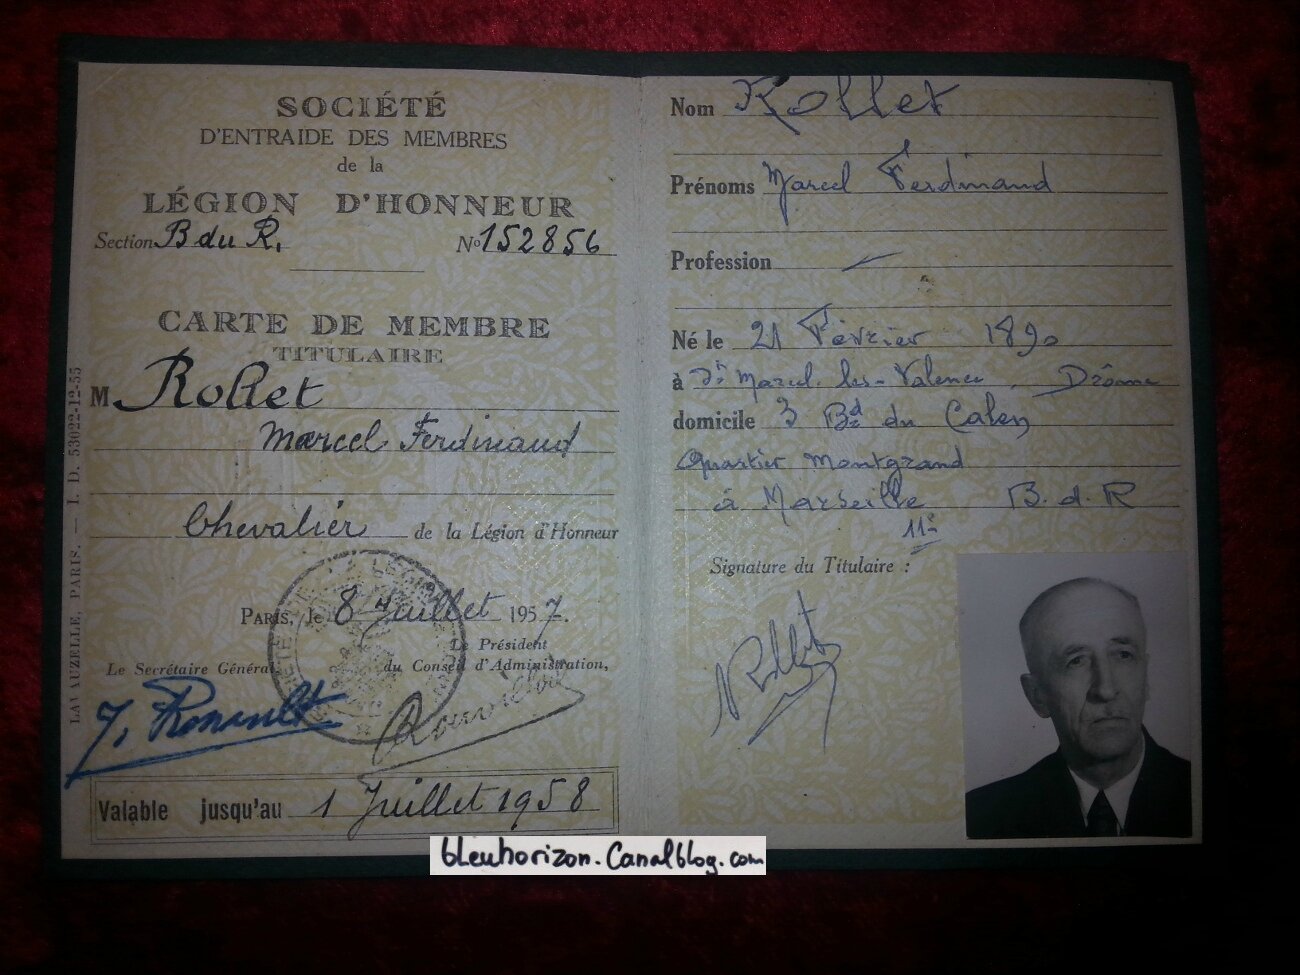 SOCIÉTÉ
D'ENTRAIDE DES MEMBRES
de la
LÉGION D'HONNEUR
Section B du R. No 152856
CARTE DE MEMBRE
TITULAIRE
M Rollet
Marcel Ferdinand
Chevalier de la Légion d'Honneur
PARIS, le 8 Juillet 1957.
Le Président
Le Secrétaire Général du Conseil d'Administration,
J. Renault
Valable jusqu'au 1 Juillet 1958
LAVAUZELLE, PARIS. — I. D. 53022-12-55
Nom Rollet
Prénoms Marcel Ferdinand
Profession
Né le 21 Février 1890
à St Marcel-les-Valence, Drôme
domicile 3 Bd du
Quartier Montgrand
à Marseille B. d. R
11e
Signature du Titulaire :
Rollet
bleuhorizon.Canalblog.com